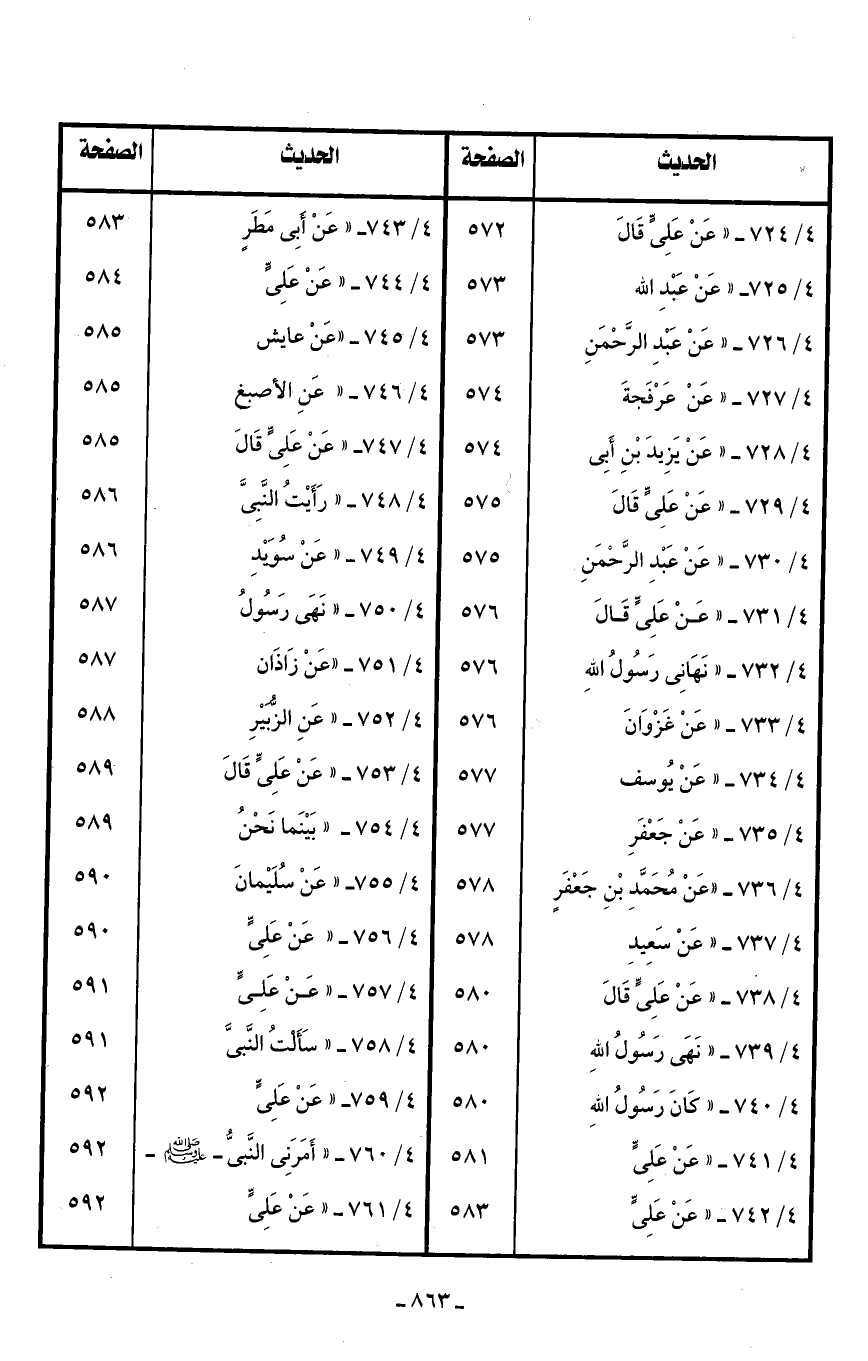 الحديث الصفحة الحديث الصفحة
٤/ ٧٢٤ ـ « عَنْ عَلِىٍّ قَالَ ٥٧٢ ٤/ ٧٤٣ـ « عَنْ أَبِى مَطَرٍ ٥٨٣
٤/ ٧٢٥ـ « عَنْ عَبْدِ الله ٥٧٣ ٤/ ٧٤٤ ـ « عَنْ عَلِىٍّ ٥٨٤
٤/ ٧٢٦ ـ « عَنْ عَبْدِ الرَّحْمَنِ ٥٧٣ ٤/ ٧٤٥ ـ «عَنْ عايش ٥٨٥
٤/ ٧٢٧ ـ « عَنْ عَرْفَجةَ ٥٧٤ ٤/ ٧٤٦ ـ « عَنِ الأصبغ ٥٨٥
٤/ ٧٢٨ ـ « عَنْ يَزِيدَ بْنِ أَبى ٥٧٤ ٤/ ٧٤٧ـ « عَنْ عَلِىٍّ قَالَ ٥٨٥
٤/ ٧٢٩ ـ « عَنْ عَلِىٍّ قَالَ ٥٧٥ ٤/ ٧٤٨ ـ « رَأَيْتُ النَّبِىَّ ٥٨٦
٤/ ٧٣٠ ـ « عَنْ عَبْدِ الرَّحْمَنِ ٥٧٥ ٤/ ٧٤٩ ـ « عَنْ سُوَيْدِ ٥٨٦
٤/ ٧٣١ ـ « عَـنْ عَلِىٍّ قَـالَ ٥٧٦ ٤/ ٧٥٠ ـ « نَهَى رَسُولُ ٥٨٧
٤/ ٧٣٢ ـ « نَهَانِى رَسُولُ اللهِ ٥٧٦ ٤/ ٧٥١ ـ «عَنْ زَاذَان ٥٨٧
٤/ ٧٣٣ ـ « عَنْ غَزْوَانَ ٥٧٦ ٤/ ٧٥٢ ـ « عَنِ الزُّبَيْرِ ٥٨٨
٤/ ٧٣٤ ـ « عَنْ يُوسف ٥٧٧ ٤/ ٧٥٣ ـ « عَنْ عَلِىٍّ قَالَ ٥٨٩
٤/ ٧٣٥ ـ « عَنْ جَعْفَرِ ٥٧٧ ٤/ ٧٥٤ ـ « بَيْنَما نَحْنُ ٥٨٩
٤/ ٧٣٦ ـ «عَنْ مُحَمَّدِ بْنِ جَعْفَرٍ ٥٧٨ ٤/ ٧٥٥ـ « عَنْ سُلَيْمانَ ٥٩٠
٤/ ٧٣٧ ـ « عَنْ سَعِيدِ ٥٧٨ ٤/ ٧٥٦ ـ « عَنْ عَلِىٍّ ٥٩٠
٤/ ٧٣٨ ـ « عَنْ عَلِىٍّ قَالَ ٥٨٠ ٤/ ٧٥٧ ـ « عَـنْ عَلِـىٍّ ٥٩١
٤/ ٧٣٩ ـ « نَهَى رَسُولُ اللهِ ٥٨٠ ٤/ ٧٥٨ ـ « سَأَلْتُ النَّبِىَّ ٥٩١
٤/ ٧٤٠ ـ « كَانَ رَسُولُ اللهِ ٥٨٠ ٤/ ٧٥٩ـ « عَنْ عَلِىٍّ ٥٩٢
٤/ ٧٤١ ـ « عَنْ عَلِىٍّ ٥٨١ ٤/ ٧٦٠ ـ « أَمَرَنِى النَّبِىُّ ـ ﷺ ـ ٥٩٢
٤/ ٧٤٢ ـ « عَنْ عَلِىٍّ ٥٨٣ ٤/ ٧٦١ ـ « عَنْ عَلِىٍّ ٥٩٢
ـ ٨٦٣ ـ